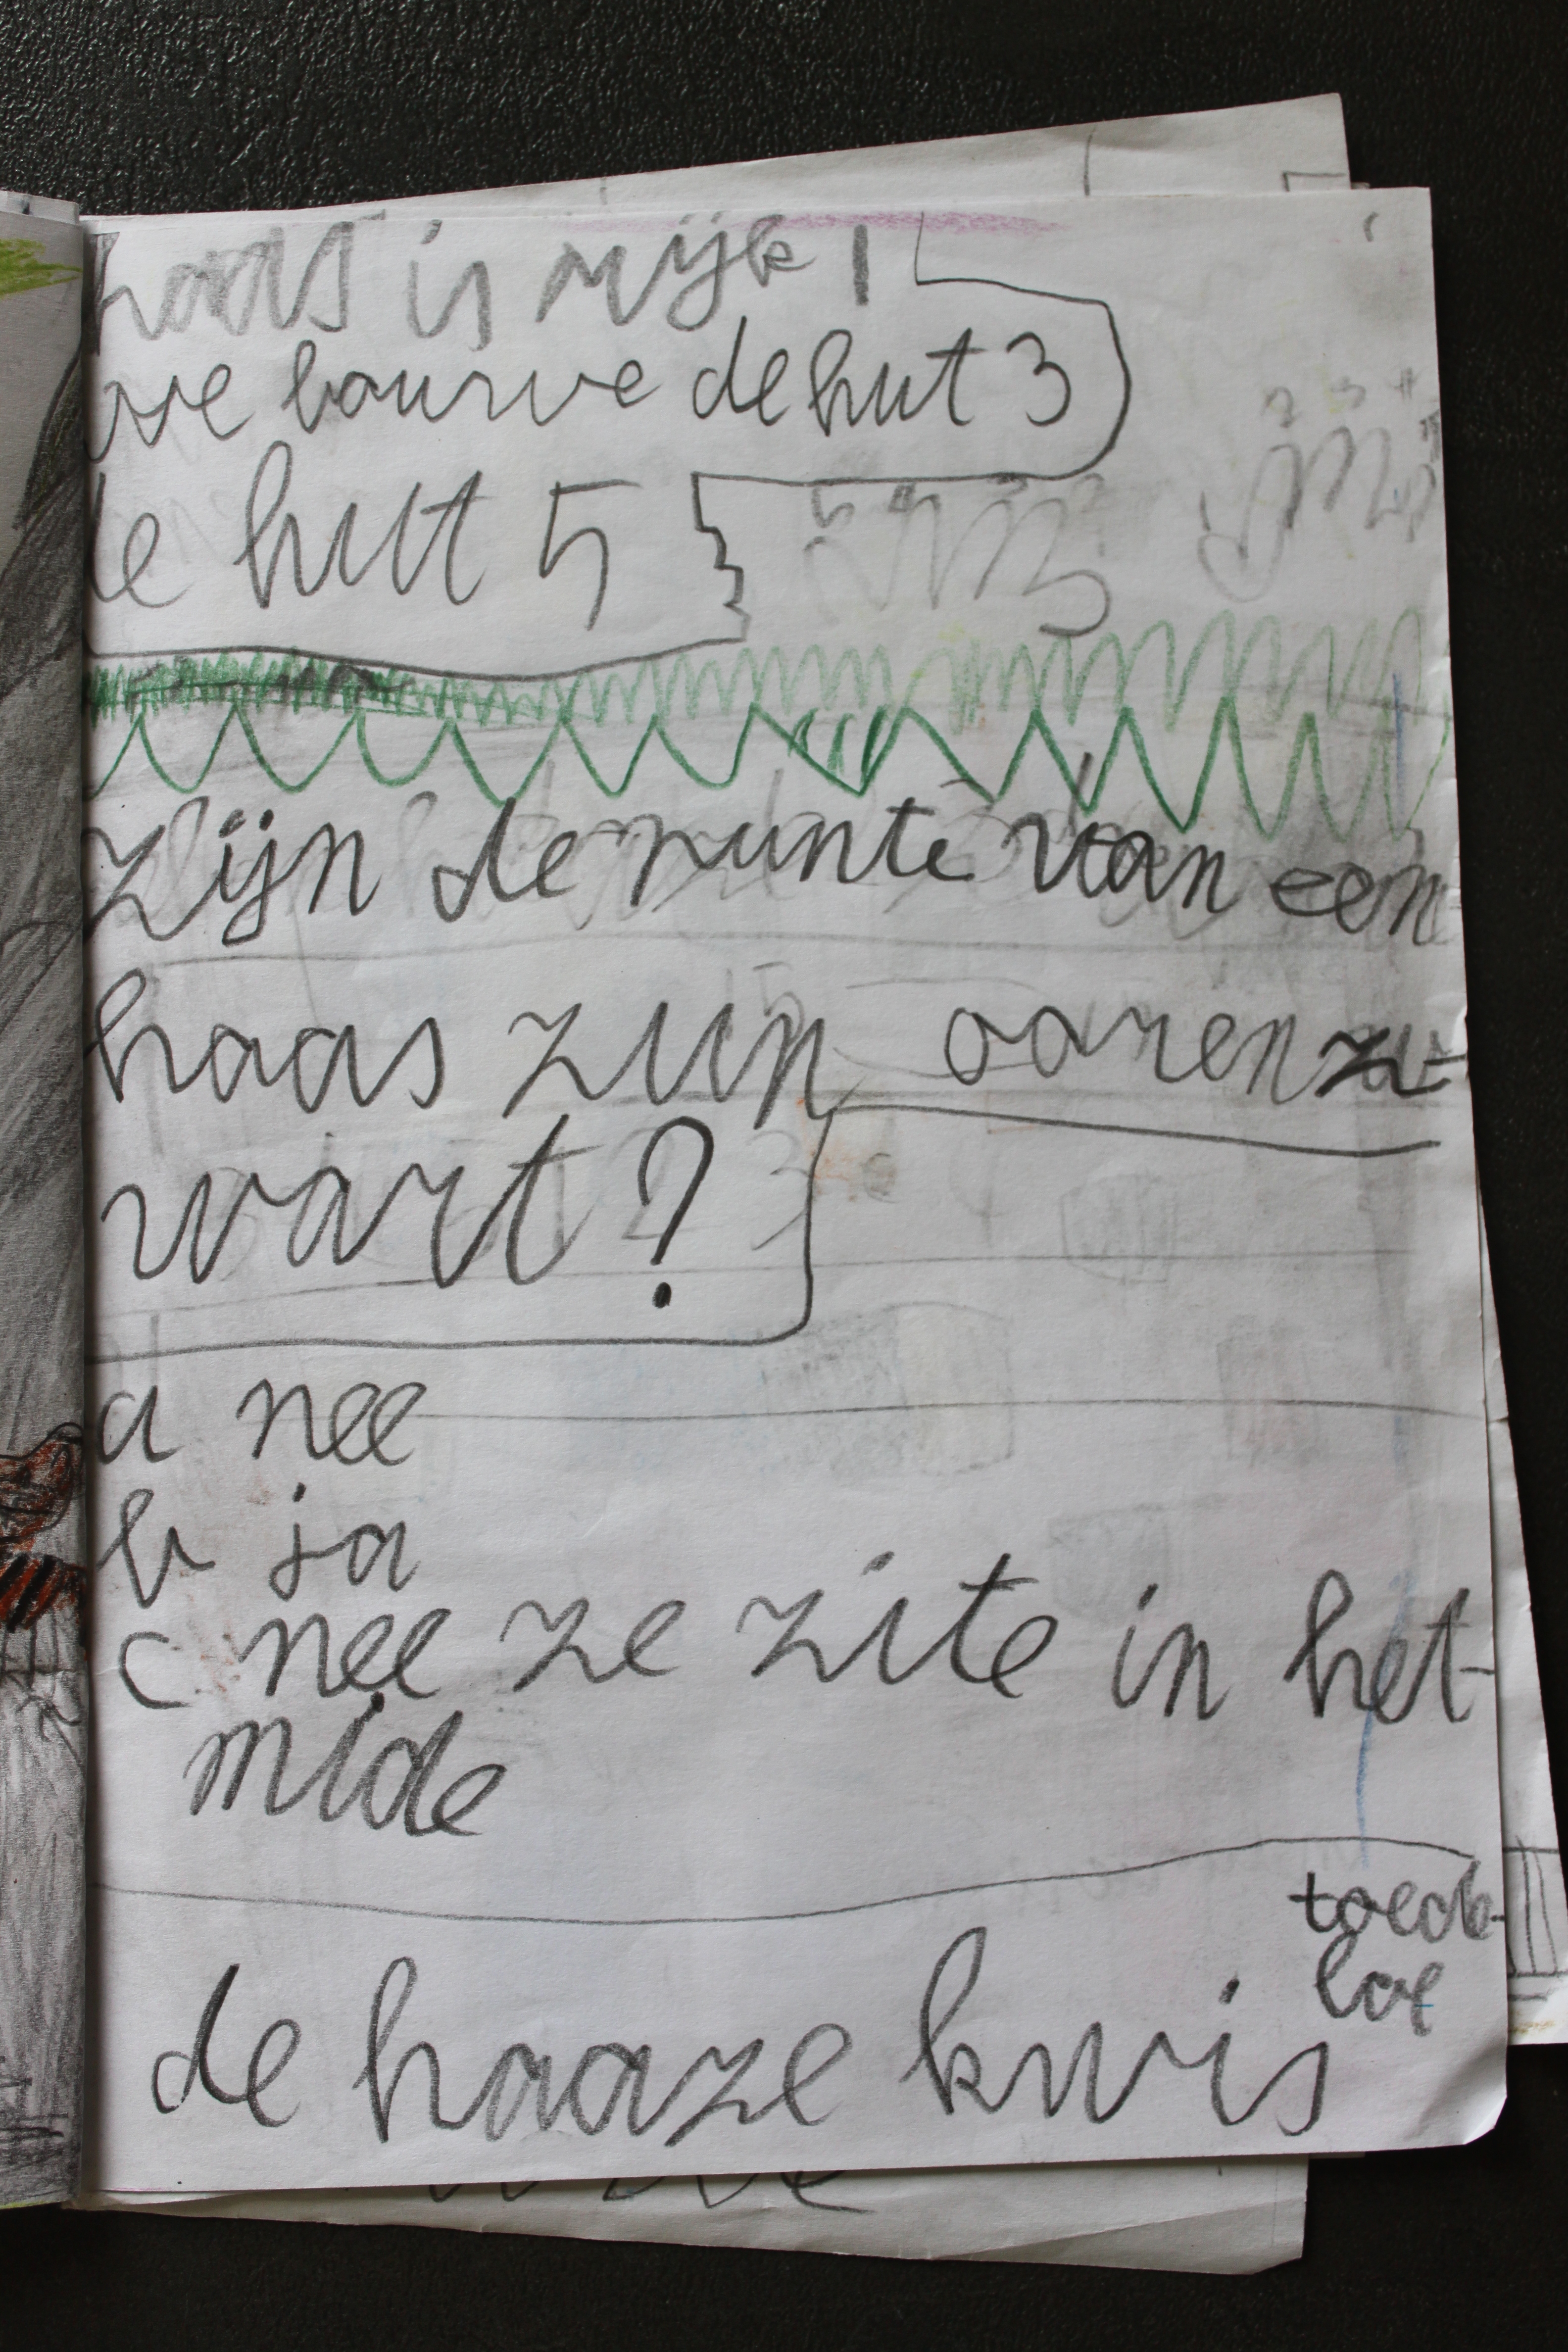 haas is rijk 1
we bouwe de hut 3
de hut 5
zijn de punte van een
haas zijn oorenz-
wart?
a nee
b ja
c nee ze zite in het-
mide
toede-
loe
de haaze kwis